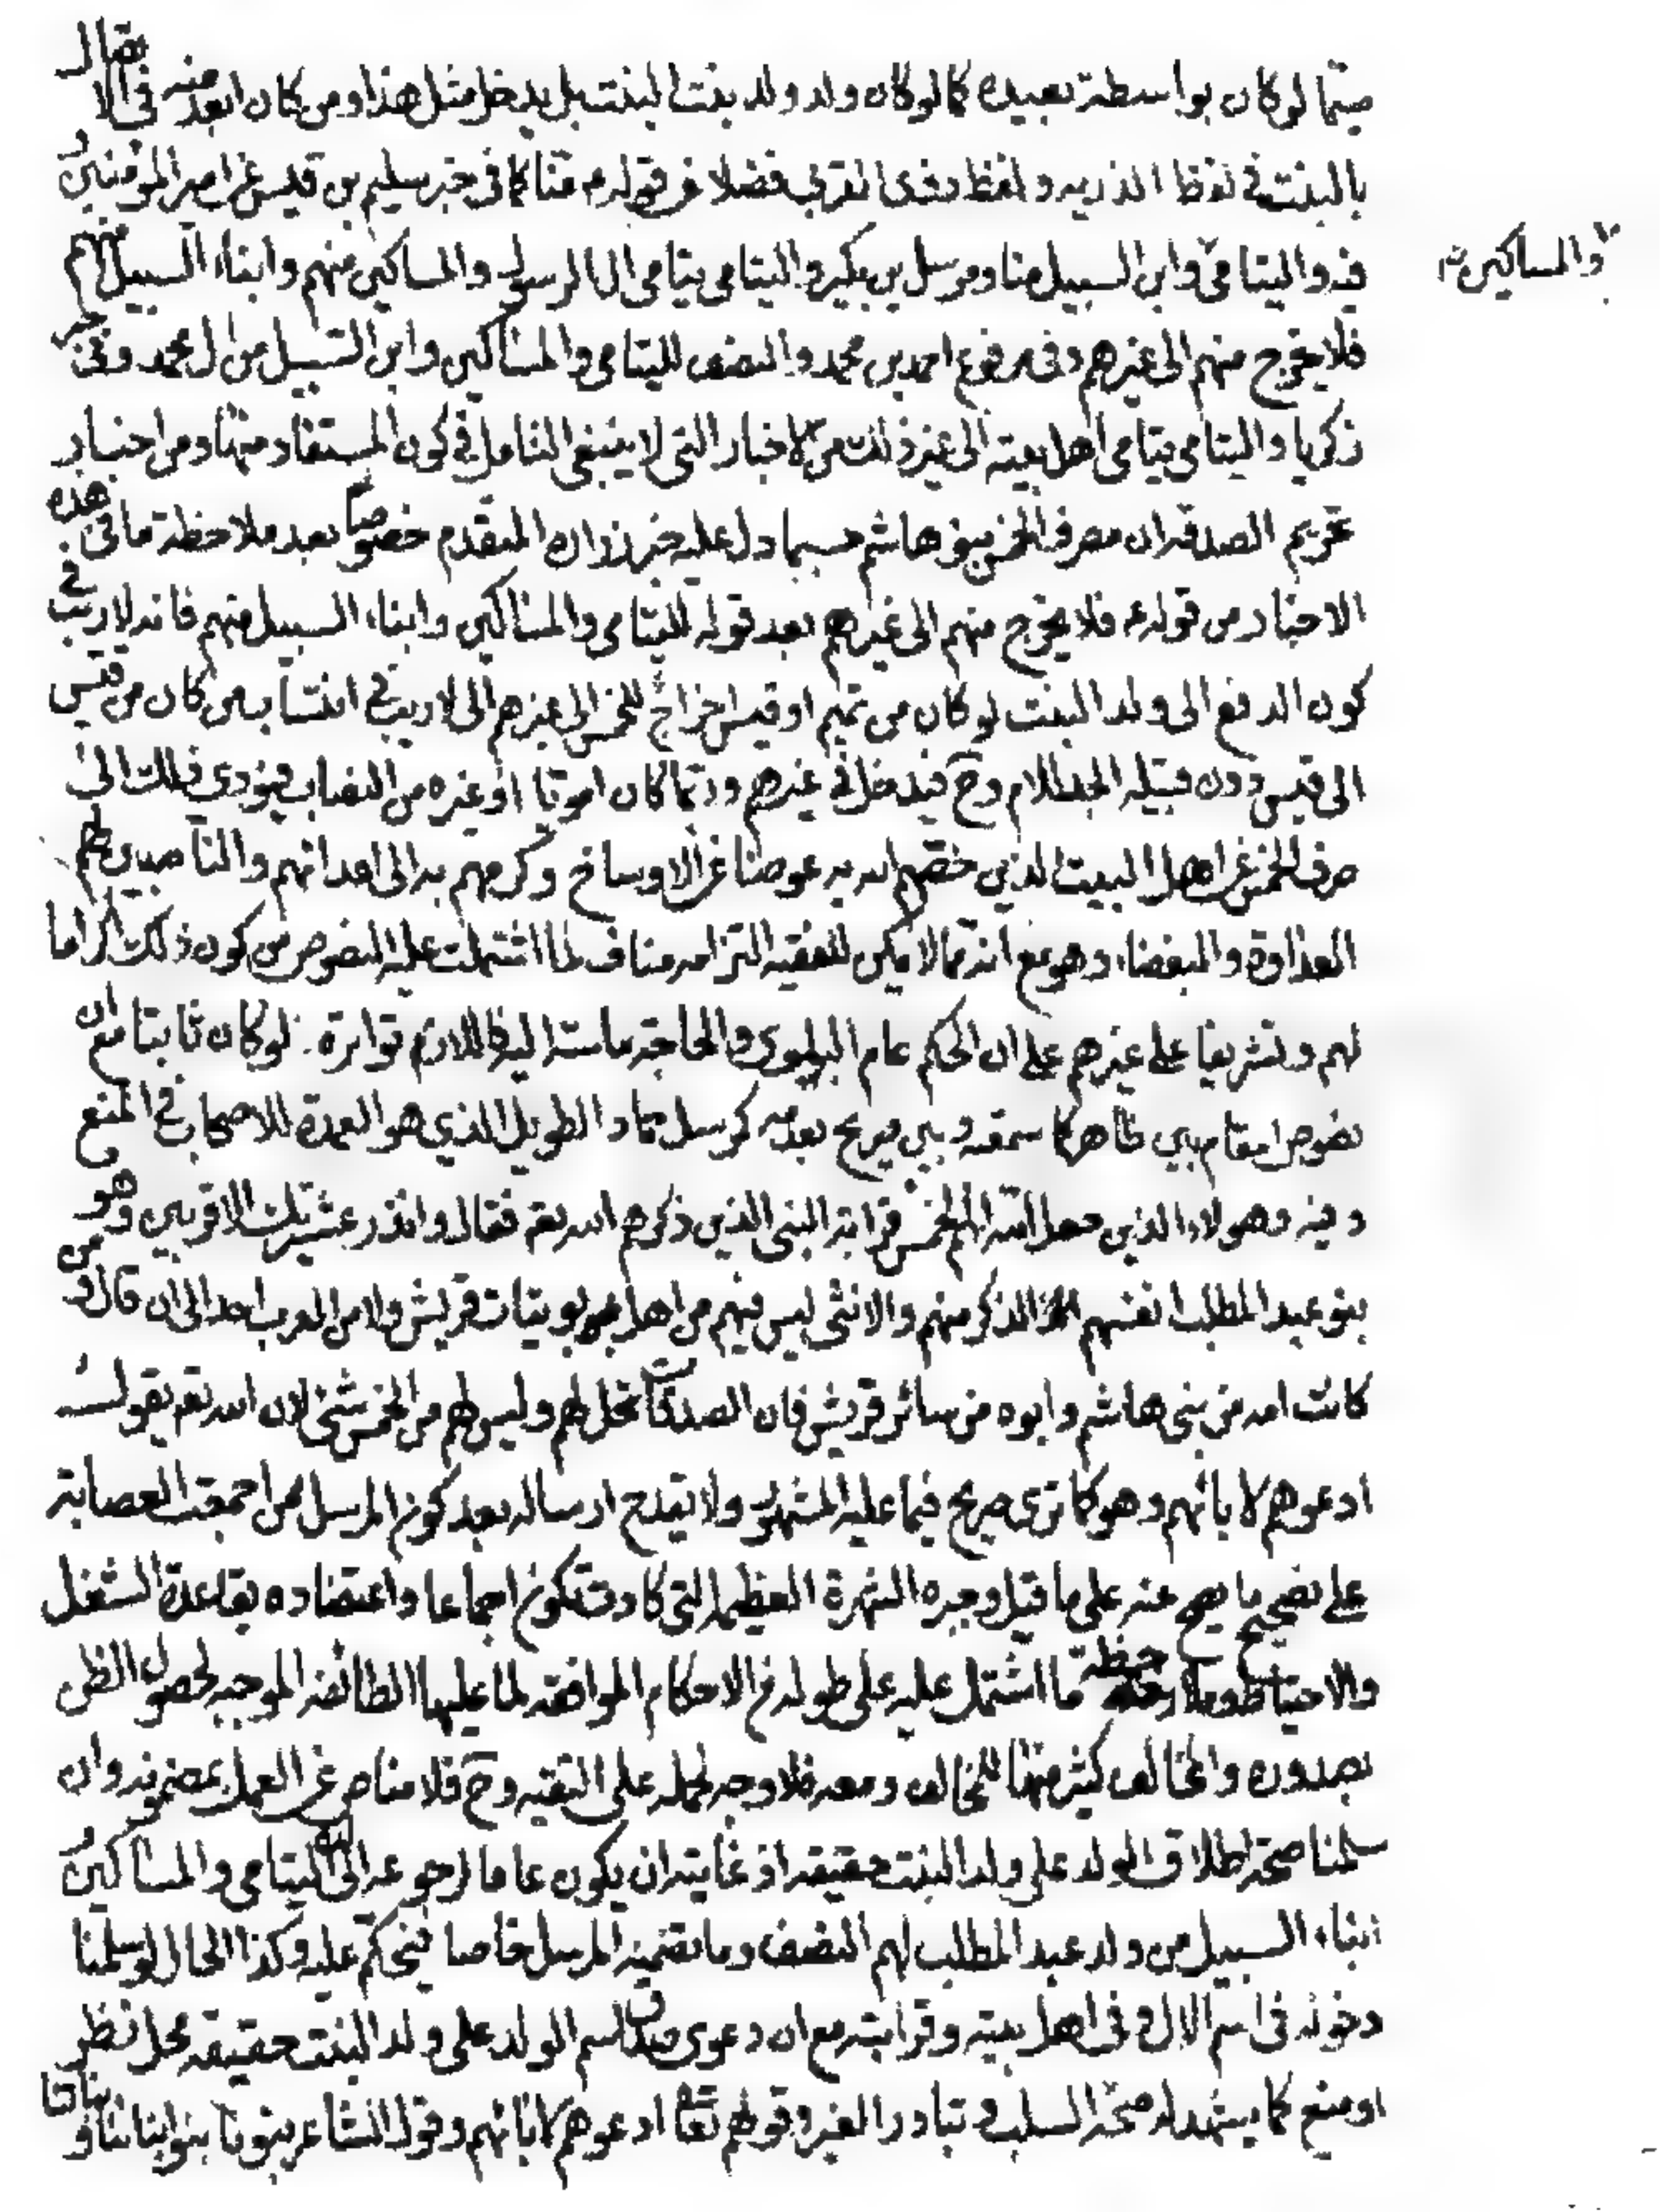 سيما لو كان بواسطة بعيدة كما لو كان ولد ولد بنت البنت بل يدخل مثل هذا ومن كان ابعد منه في الاتصال
بالبنت في لفظ الذريه ولفظ ذوى القربى فضلا عن قوله ع منا كما في خبر سليم بن قيس عن امير المؤمنين و
فيه واليتامى والمساكين وابن السبيل منا ومرسل بن بكير واليتامى يتامى ال الرسول والمساكين منهم وابناء السبيل منهم
فلا يخرج منهم الى غيرهم وفى مرفوع احمد بن محمد والنصف لليتامى والمساكين وابن السبيل من ال محمد وفى خبر
زكريا واليتامى يتامى اهل بيته الى غير ذلك من الاخبار التى لا ينبغى التامل في كون المستفاد منها ومن اخبار
تحريم الصدقه ان مصرف الخمس بنو هاشم حسبما دل عليه خبر زرارة المتقدم خصوصا بعد ملاحظة ما فى هذه
الاخبار من قوله ع فلا يخرج منهم الى غيرهم بعد قوله لليتامى والمساكين وابناء السبيل منهم فانه لا ريب في
كون الدفع الى ولد البنت لو كان من تميم او قيس اخراج للخمس الى غيرهم اذ لا ريب في انتساب من كان من قيس
الى قيس دون قبيلة الجد للام وح فيدخل في غيرهم وربما كان امويا او غيره من النصاب فيؤدي ذلك الى
صرف الخمس عن اهل البيت الذين خصهم الله به عوضا عن الاوساخ وكرمهم به الى اعدائهم والناصبين لهم
العداوة والبغضاء وهو مع انه مما لا يمكن للفقيه التزامه مناف لما اشتملت عليه النصوص من كون ذلك اكراما
لهم وتشريفا على غيرهم على ان الحكم عام البلوى والحاجة ماسة اليه فاللازم تواتره لو كان ثابتا مع ان
نصوص المقام بين ظاهر كما سمعته وبين صريح بعدمه كمرسل حماد الطويل الذي هو العمدة للاصحاب في المنع
وفيه وهولاء الذين جعل الله لهم الخمس قرابة النبى الذين ذكرهم الله تعه فقال وانذر عشيرتك الاقربين وهم
بنو عبد المطلب انفسهم الذكر منهم والانثى ليس فيهم من اهل بيوتات قريش ولا من العرب احد الى ان قال ومن
كانت امه من بنى هاشم وابوه من سائر قريش فان الصدقات تحل لهم وليس لهم من الخمس شئ لان الله تعه يقول
ادعوهم لابائهم وهو كما ترى صريح فيما عليه المشهور ولا يقدح ارساله بعد كون المرسل ممن اجمعت العصابة
على تصحيح ما يصح عنه على ما قيل وجبره الشهرة العظيمة التى كادت تكون اجماعا واعتضاده بقاعدة الشغل
والاحتياط وملاحظة ما اشتمل عليه على طوله من الاحكام الموافقه لما عليها الطائفه الموجبه لحصول الظن
بصدوره والمخالف كثير منها للمخالف ومعه فلا وجه لحمله على التقيه وح فلا مناص عن العمل بمضمونه وان
سلمنا صحة اطلاق الولد على ولد البنت حقيقه اذ غايته ان يكون عاما لرجوعه الى ان اليتامى والمساكين و
ابناء السبيل من ولد عبد المطلب لهم النصف وما تضمنه المرسل خاصا فيحكم عليه وكذا الحال لو سلمنا
دخوله فى اسم الال وفى اهل بيته وقرابته مع ان دعوى صدق اسم الولد على ولد البنت حقيقه محل نظر
او منع كما يشهد له صحة السلب وتبادر الغير وقوله تعا ادعوهم لابائهم وقول الشاعر بنونا بنو ابنائنا وبناتنا